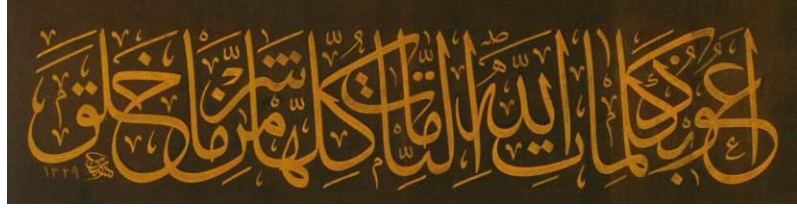 أعوذ بكلمات الله التامات كلها من شر ما خلق ١٣٢٩